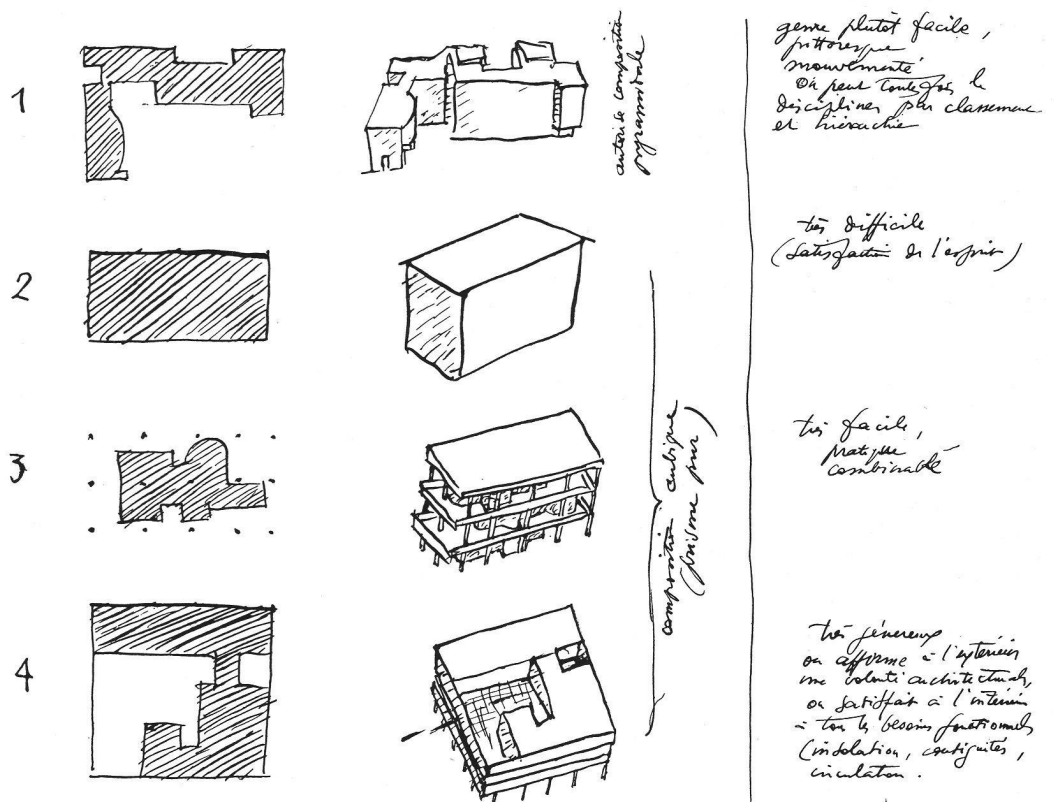 1
autorise composition
pyramidale
genre plutôt facile,
pittoresque
mouvementé
on peut toutefois le
discipliner par classement
et hiérarchie
2
très difficile
(satisfaction de l'esprit)
composition cubique
(prisme pur)
3
très facile,
pratique
combinable
4
très généreux
on affirme à l'extérieur
une volonté architecturale,
on satisfait à l'intérieur
à tous les besoins fonctionnels
(insolation, contiguités,
circulation.